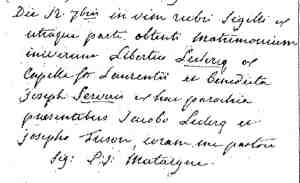 Die 12 7bris in vim rubri Sigilli ex
utraque parte obtenti Matrimonium
inierunt Libertus Leclercq ex
Capella St Laurentii et Benedicta
Joseph Servais ex hac parochia
praesentibus Jacobo Leclercq et
Josepho Tuson, coram me pastore
Sig: P. J: Matargne.